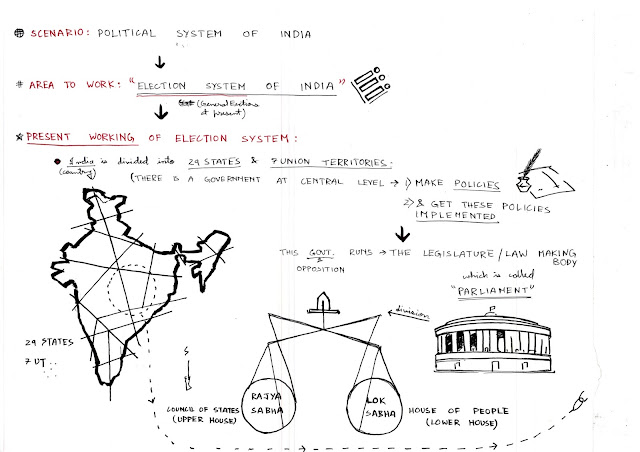 SCENARIO: POLITICAL SYSTEM OF INDIA
# AREA TO WORK: "ELECTION SYSTEM OF INDIA"
(General Elections
at present)
PRESENT WORKING OF ELECTION SYSTEM:
India is divided into 29 STATES & 7 UNION TERRITORIES.
(country)
(THERE IS A GOVERNMENT AT CENTRAL LEVEL → 1) MAKE POLICIES
2) & GET THESE POLICIES
IMPLEMENTED
THIS GOVT. RUNS → THE LEGISLATURE/LAW MAKING
& BODY
OPPOSITION
which is called
"PARLIAMENT"
division
29 STATES
7 UT
RAJYA
SABHA
LOK
SABHA
COUNCIL OF STATES
(UPPER HOUSE)
HOUSE OF PEOPLE
(LOWER HOUSE)